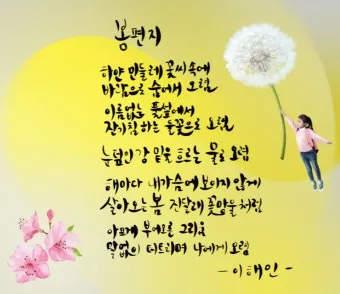 봄편지
하얀 민들레 꽃씨속에
바람으로 숨어서 오렴
이름없는 풀섶에서
잔기침하는 들꽃으로 오렴
눈덮인 강 밑을 흐르는 물로 오렴
해마다 내가슴에 보이지 않게
살아오는 봄 진달래 꽃망울처럼
아프게 부어오른 그리움
말없이 터트리며 나에게 오렴
- 이해인 -